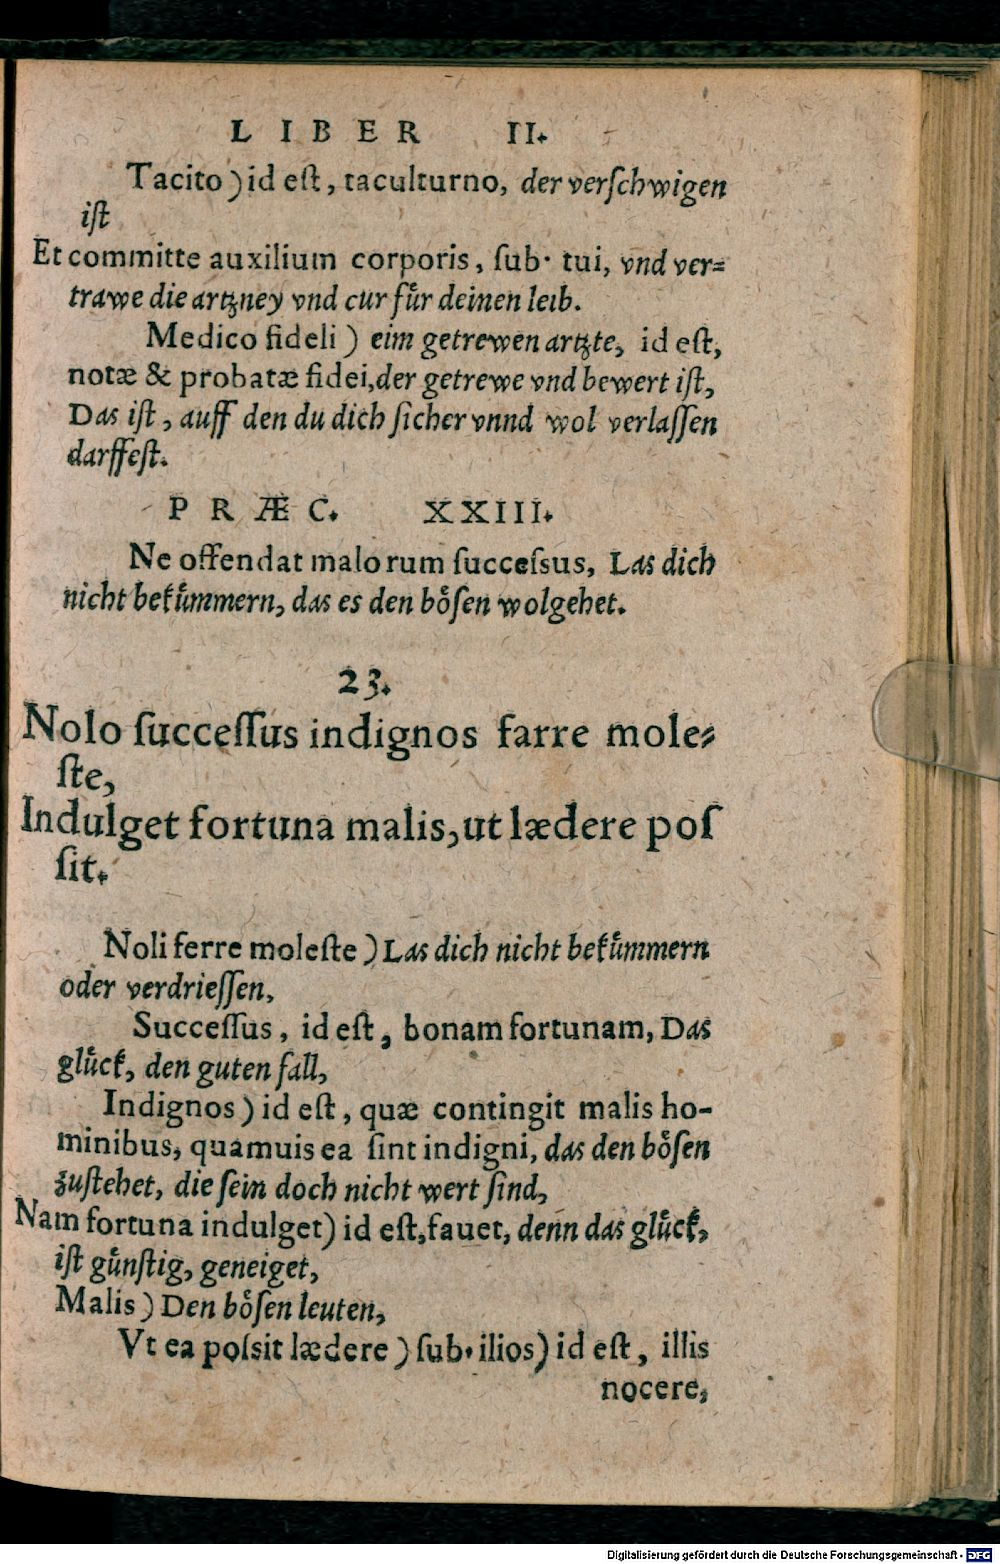 LIBER II.
Tacito) id eſt, taculturno, der verſchwigen
iſt
Et committe auxilium corporis, ſub. tui, vnd ver=
trawe die artzney vnd cur fuͤr deinen leib.
Medico fideli) eim getrewen artzte, id eſt,
notæ & probatæ fidei, der getrewe vnd bewert iſt,
Das iſt, auff den du dich ſicher vnnd wol verlaſſen
darffeſt.
PRÆC. XXIII.
Ne offendat malorum ſucceſsus, Las dich
nicht bekuͤmmern, das es den boͤſen wolgehet.
23.
Nolo ſucceſſus indignos farre mole⸗
ſte,
Indulget fortuna malis, ut lædere poſ
ſit.
Noli ferre moleſte) Las dich nicht bekuͤmmern
oder verdrieſſen,
Succeſſus, id eſt, bonam fortunam, Das
gluͤck, den guten fall,
Indignos) id eſt, quæ contingit malis ho-
minibus, quamuis ea ſint indigni, das den boͤſen
zuſtehet, die ſein doch nicht wert ſind,
Nam fortuna indulget) id eſt, fauet, denn das gluͤck,
iſt guͤnſtig, geneiget,
Malis) Den boͤſen leuten,
Vt ea poſsit lædere) ſub. ilios) id eſt, illis
nocere,
Digitalisierung gefördert durch die Deutsche Forschungsgemeinschaft - DFG